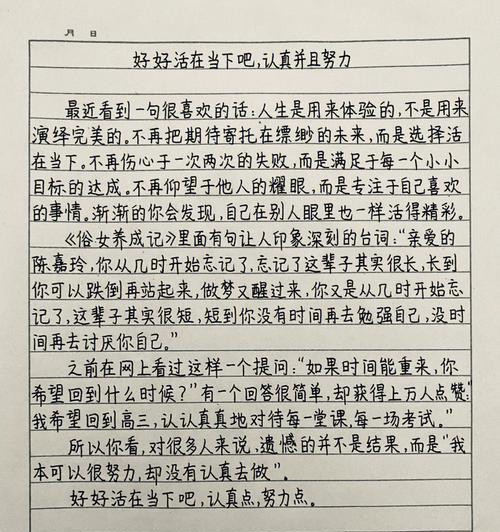 月 日
好好活在当下吧,认真并且努力
最近看到一句很喜欢的话:人生是用来体验的,不是用来
演绎完美的。不再把期待寄托在缥缈的未来,而是选择活
在当下。不再伤心于一次两次的失败,而是满足于每一个小小
目标的达成。不再仰望于他人的耀眼,而是专注于自己喜欢
的事情。渐渐的你会发现,自己在别人眼里也一样活得精彩。
《俗女养成记》里面有句让人印象深刻的台词:“亲爱的
陈嘉玲,你从几时开始忘记了,忘记了这辈子其实很长,长到
你可以跌倒再站起来,做梦又醒过来,你又是从几时开始忘
记了,这辈子其实很短,短到你没有时间再去勉强自己,没时
间再去讨厌你自己。”
之前在网上看过这样一个提问:“如果时间能重来,你
希望回到什么时候?”有一个回答很简单,却获得上万人点赞:
“我希望回到高三,认认真真地对待每一堂课,每一场考试。”
所以你看,对很多人来说,遗憾的并不是结果,而是“我
本可以很努力,却没有认真去做”。
好好活在当下吧,认真点,努力点。